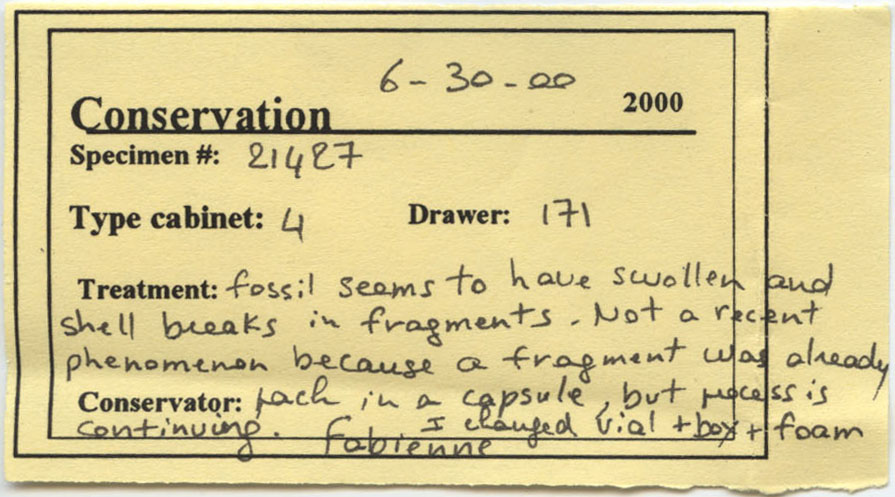 6-30-00
Conservation 2000
Specimen #: 21427
Type cabinet: 4 Drawer: 171
Treatment: fossil seems to have swollen and
shell breaks in fragments. Not a recent
phenomenon because a fragment was already
Conservator: pack in a capsule, but process is
continuing. I changed vial + box + foam
Fabienne